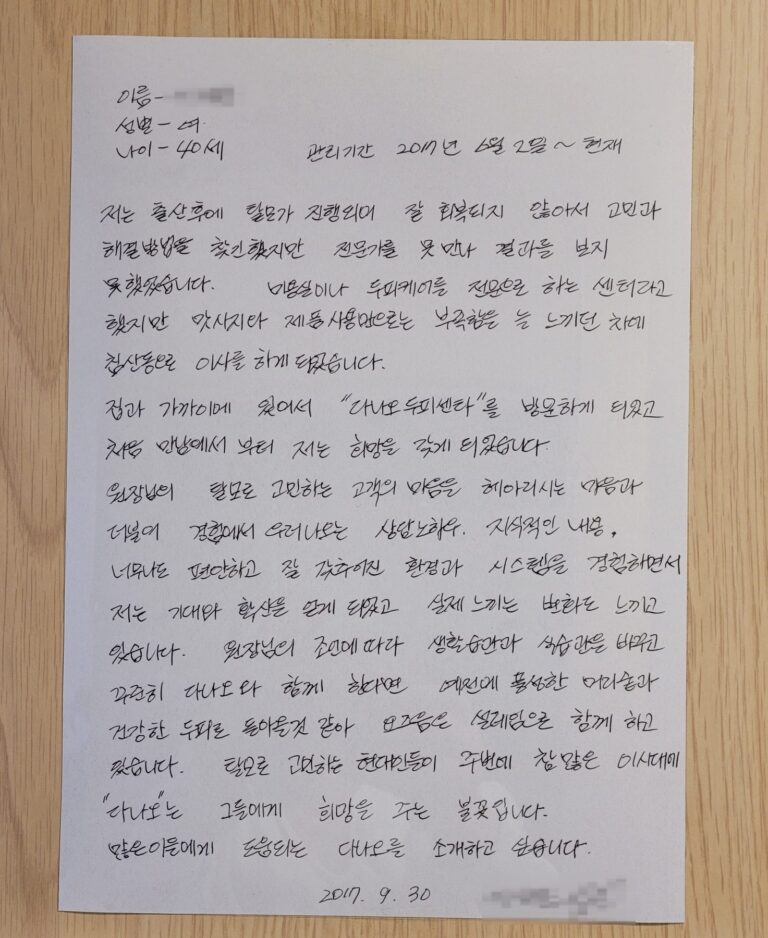 이름-
성별- 여.
나이- 40세
관리기간 2017년 6월 2일 ~ 현재
저는 출산후에 탈모가 진행되며 잘 회복되지 않아서 고민과
해결방법을 찾긴했지만 전문가를 못만나 결과를 보지
못했었습니다. 미용실이나 두피케어를 전문으로 하는 센터라고
했지만 맛사지나 제품사용만으로는 부족함을 늘 느끼던 차에
침산동으로 이사를 하게 되었습니다.
집과 가까이에 있어서 "다나오두피센타"를 방문하게 되었고
처음 만남에서 부터 저는 희망을 갖게 되었습니다.
원장님의 탈모로 고민하는 고객의 마음을 헤아리시는 마음과
더불어 경험에서 우러나오는 상담노하우. 지식적인 내용,
너무나도 편안하고 잘 갖추어진 환경과 시스템을 경험하면서
저는 기대와 확신을 얻게 되었고 실제 느끼는 변화도 느끼고
있습니다. 원장님의 조언에따라 생활습관과 식습관을 바꾸고
꾸준히 다나오와 함께 한다면 예전에 풍성한 머리숱과
건강한 두피로 돌아올것 같아 요즈음은 설레임으로 함께 하고
있습니다. 탈모로 고민하는 현대인들이 주변에 참 많은 이시대에
"다나오"는 그들에게 희망을 주는 불꽃입니다.
많은이들에게 도움되는 다나오를 소개하고 싶습니다.
2017. 9. 30